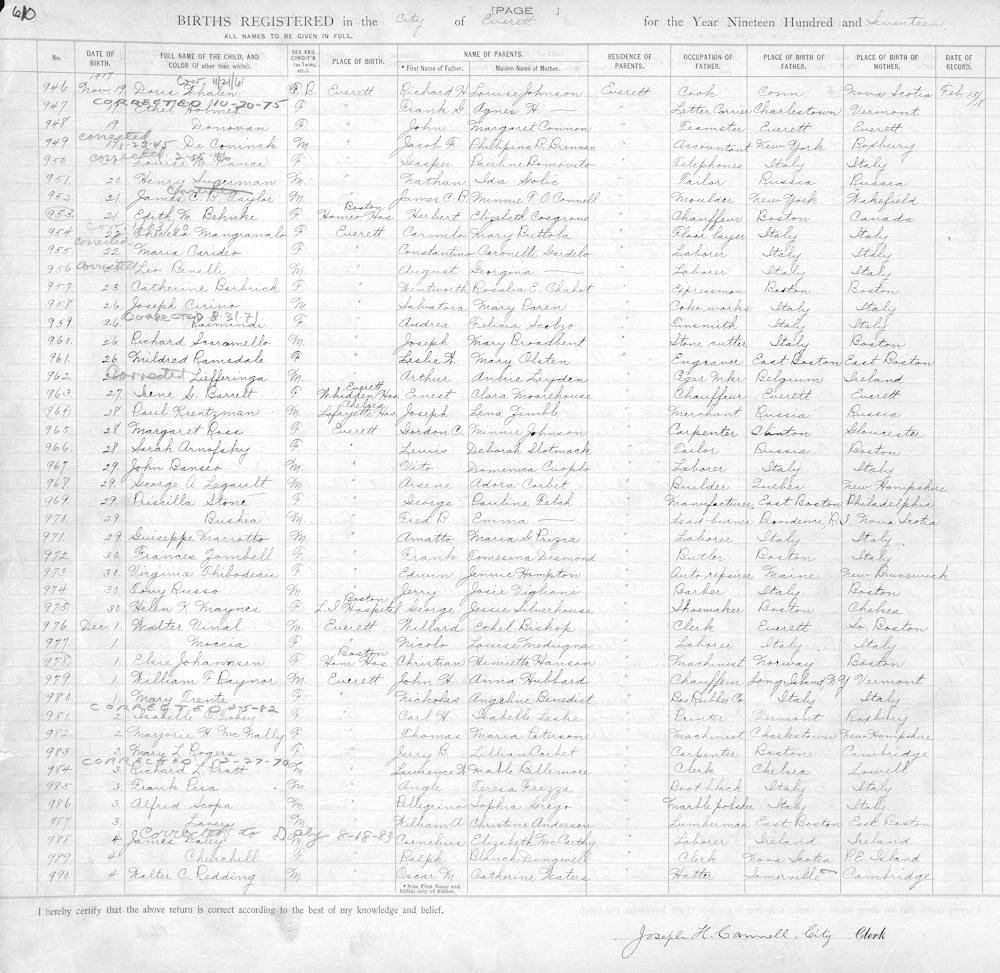 610
[PAGE ]
BIRTHS REGISTERED in the City of Everett for the Year Nineteen Hundred and Seventeen
ALL NAMES TO BE GIVEN IN FULL.
No. DATE OF BIRTH. FULL NAME OF THE CHILD, AND COLOR (if other than white). SEX AND CONDIT'N (as Twins, etc.). PLACE OF BIRTH. NAME OF PARENTS. * First Name of Father. Maiden Name of Mother. RESIDENCE OF PARENTS. OCCUPATION OF FATHER. PLACE OF BIRTH OF FATHER. PLACE OF BIRTH OF MOTHER. DATE OF RECORD.
1917 Cor. 11/21/61
946 Nov. 19 Doris Whalen F B Everett Richard H Louise Johnson Everett Cook Conn Nova Scotia Feb 15/18
CORRECTED 10-20-75
947 Ethel Holmes F " Frank S Agnes H — " Letter Carrier Charlestown Vermont
948 19 Donovan F " John Margaret Connon " Teamster Everett Everett
corrected
949 19 1-23-45 De Coninck M " Jacob F Phillipina B Brennan " Accountant New York Roxbury
corrected
950 Louise M F " Pauline " Telephones Italy Italy
951 20 Henry Sugerman M " Nathan Ida " Tailor Russia Russia
952 21 James C. B. Taylor M " James C. B Minnie T O'Connell " Moulder New York Wakefield
953 21 Edith M. Behnke F Boston Homeo Hos Herbert Elizabeth Cosgrove " Chauffeur Boston Canada
954 22 Mangranalo F Everett Carmilo Mary Buttola " Floor layer Italy Italy
corrected
955 22 Maria Carideo F " Constantino Caronelle Gardelo " Laborer Italy Italy
956 corrected Leo Benelli M " August Georgina — " Laborer Italy Italy
957 23 Catherine Barbrick F " Wentworth Rosalia E. Chabot " Expressman Boston Boston
958 26 Joseph Cirino M " Salvatore Mary Paren " Coke works Italy Italy
CORRECTED 8-31-71
959 26 Raimundi F " Andrea Felicia Scobzo " Tinsmith Italy Italy
960 26 Richard Scaramello M " Joseph Mary Broadbent " Stone cutter Italy Boston
961 26 Mildred Ramsdale F " Leslie W. Mary Olsten " Engraver East Boston East Boston
962 26 corrected Liefferinga M " Arthur Annie Leyden " Cigar Mker Belgium Ireland
963 27 Irene G. Barrett F Everett Whidden Hos Ernest Clara Moorehouse " Chauffeur Everett Everett
964 28 Paul Krentzman M Chelsea Lafayette Hos Joseph Lena Zimble " Merchant Russia Russia
965 28 Margaret Ross F Everett Gordon C. Minnie Johnson " Carpenter Clinton Gloucester
966 28 Sarah Arnofsky F " Lewis Deborah Slotmack " Tailor Russia Boston
967 29 John Banseo M " Vito Domenica Cuoplo " Laborer Italy Italy
968 29 George A Legault M " Arsene Adora Corbet " Builder Quebec New Hampshire
969 29 Priscilla Stone F " George Pauline Felch " Manufacturer East Boston Philadelphia
970 29 Bushea M " Fred B Emma — " Lead burner Providence, R.I. Nova Scotia
971 29 Guiseppe Marrotto M " Amatto Maria G Prizia " Laborer Italy Italy
972 30 Frances Zombell F " Frank Tomesina Desmond " Butler Boston Italy
973 30 Virginia Thibodeau F " Edwin Jennie Hampton " Auto repairer Maine New Brunswick
974 30 Tony Russo M " Jerry Josie Viglioni " Barber Italy Boston
975 30 Helen K Maynes F Boston L.I. Hospital George Jessie Silverhouse " Shoemaker Boston Chelsea
976 Dec. 1 Walter Vinal M Everett Willard Ethel Bishop " Clerk Everett So. Boston
977 1 Moccia F " Nicolo Louise Medugna " Laborer Italy Italy
978 1 Elsie Johannsen F Boston Hom Hos Christian Henriette Hanson " Machinist Norway Boston
979 1 William F Raynor M Everett John H Anna Hubbard " Chauffeur Long Island N.Y Vermont
980 1 Mary Trente F " Nicholas Angeline Benedict " Bos Rubber Co Italy Italy
CORRECTED 2-5-82
981 2 Isabelle C Tobey F " Carl H. Isabelle Leslie " Printer Vermont Roxbury
982 2 Marjorie H McNally F " Thomas Maria Peterson " Machinist Charlestown New Hampshire
983 3 Mary L Rogers F " Jerry B Lillian Corbet " Carpenter Boston Cambridge
CORRECTED 12-27-70
984 3 Richard L Pratt " Lawrence W Mable Bellemore " Clerk Chelsea Lowell
985 3 Frank Pesa M " Angle Teresa Frezza " Boot black Italy Italy
986 3 Alfred Scopa M " Pellegrino Sophia Grego " Marble polisher Italy Italy
987 3 Lavery M " William A Christine Anderson " Lumberman East Boston East Boston
Corrected to Daly 8-18-83
988 4 James Daley M " Cornelius Elizabeth McCarthy " Laborer Ireland Ireland
989 4 Churchill F " Ralph Blanch Dingwell " Clerk Nova Scotia P.E. Island
990 4 Walter C. Redding M " Oscar M Catherine Waters " Hatter Somerville Cambridge
* Note First Name and Initial only of Father.
I hereby certify that the above return is correct according to the best of my knowledge and belief.
Joseph H. Cannell, City Clerk